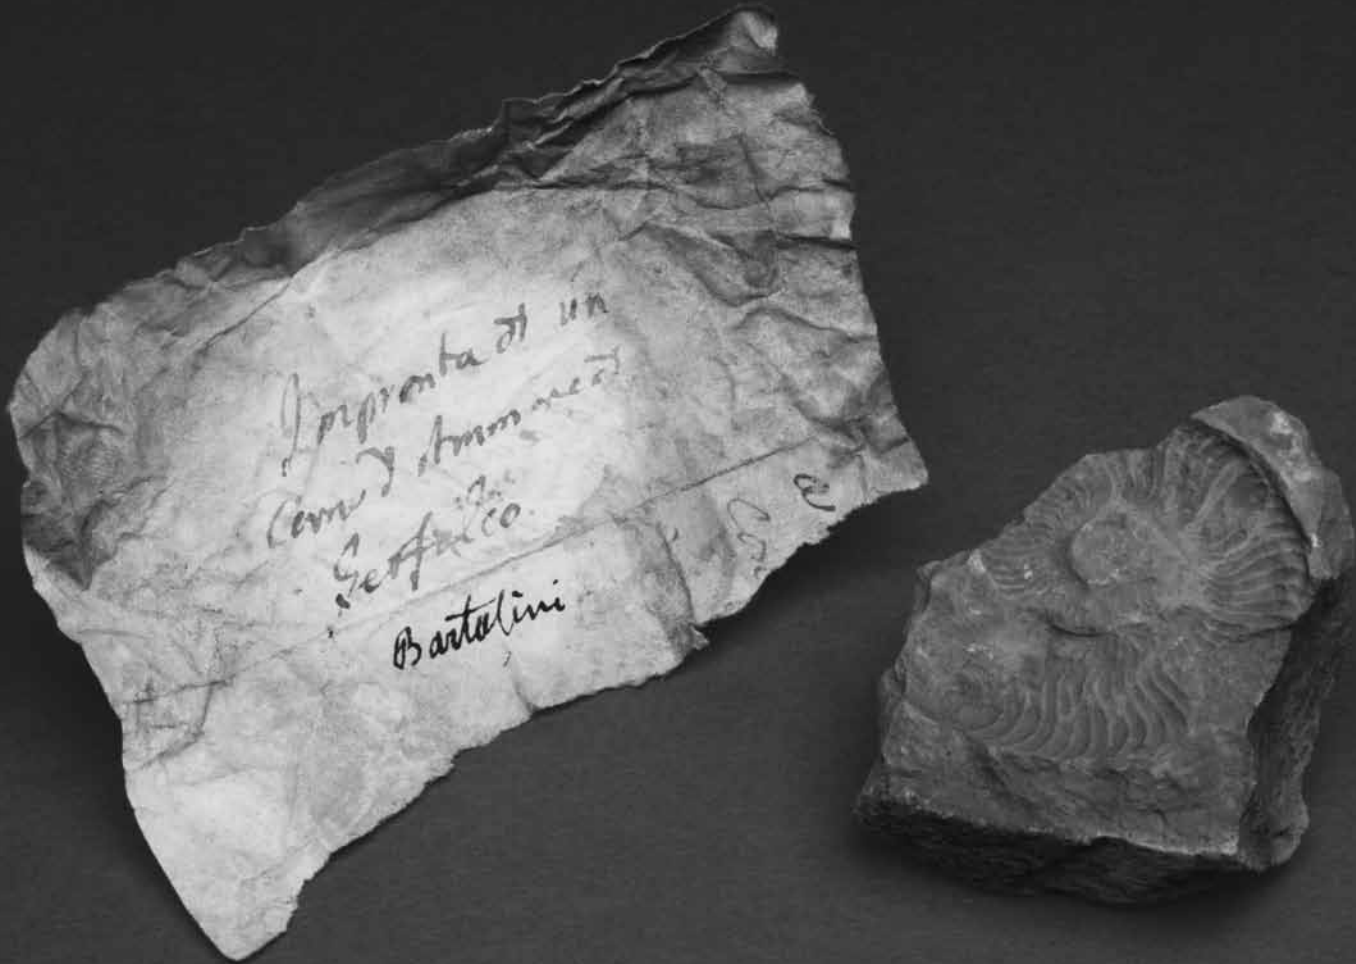 Impronta di un
Corno d'Ammone di
Gerfalco.
Bartalini